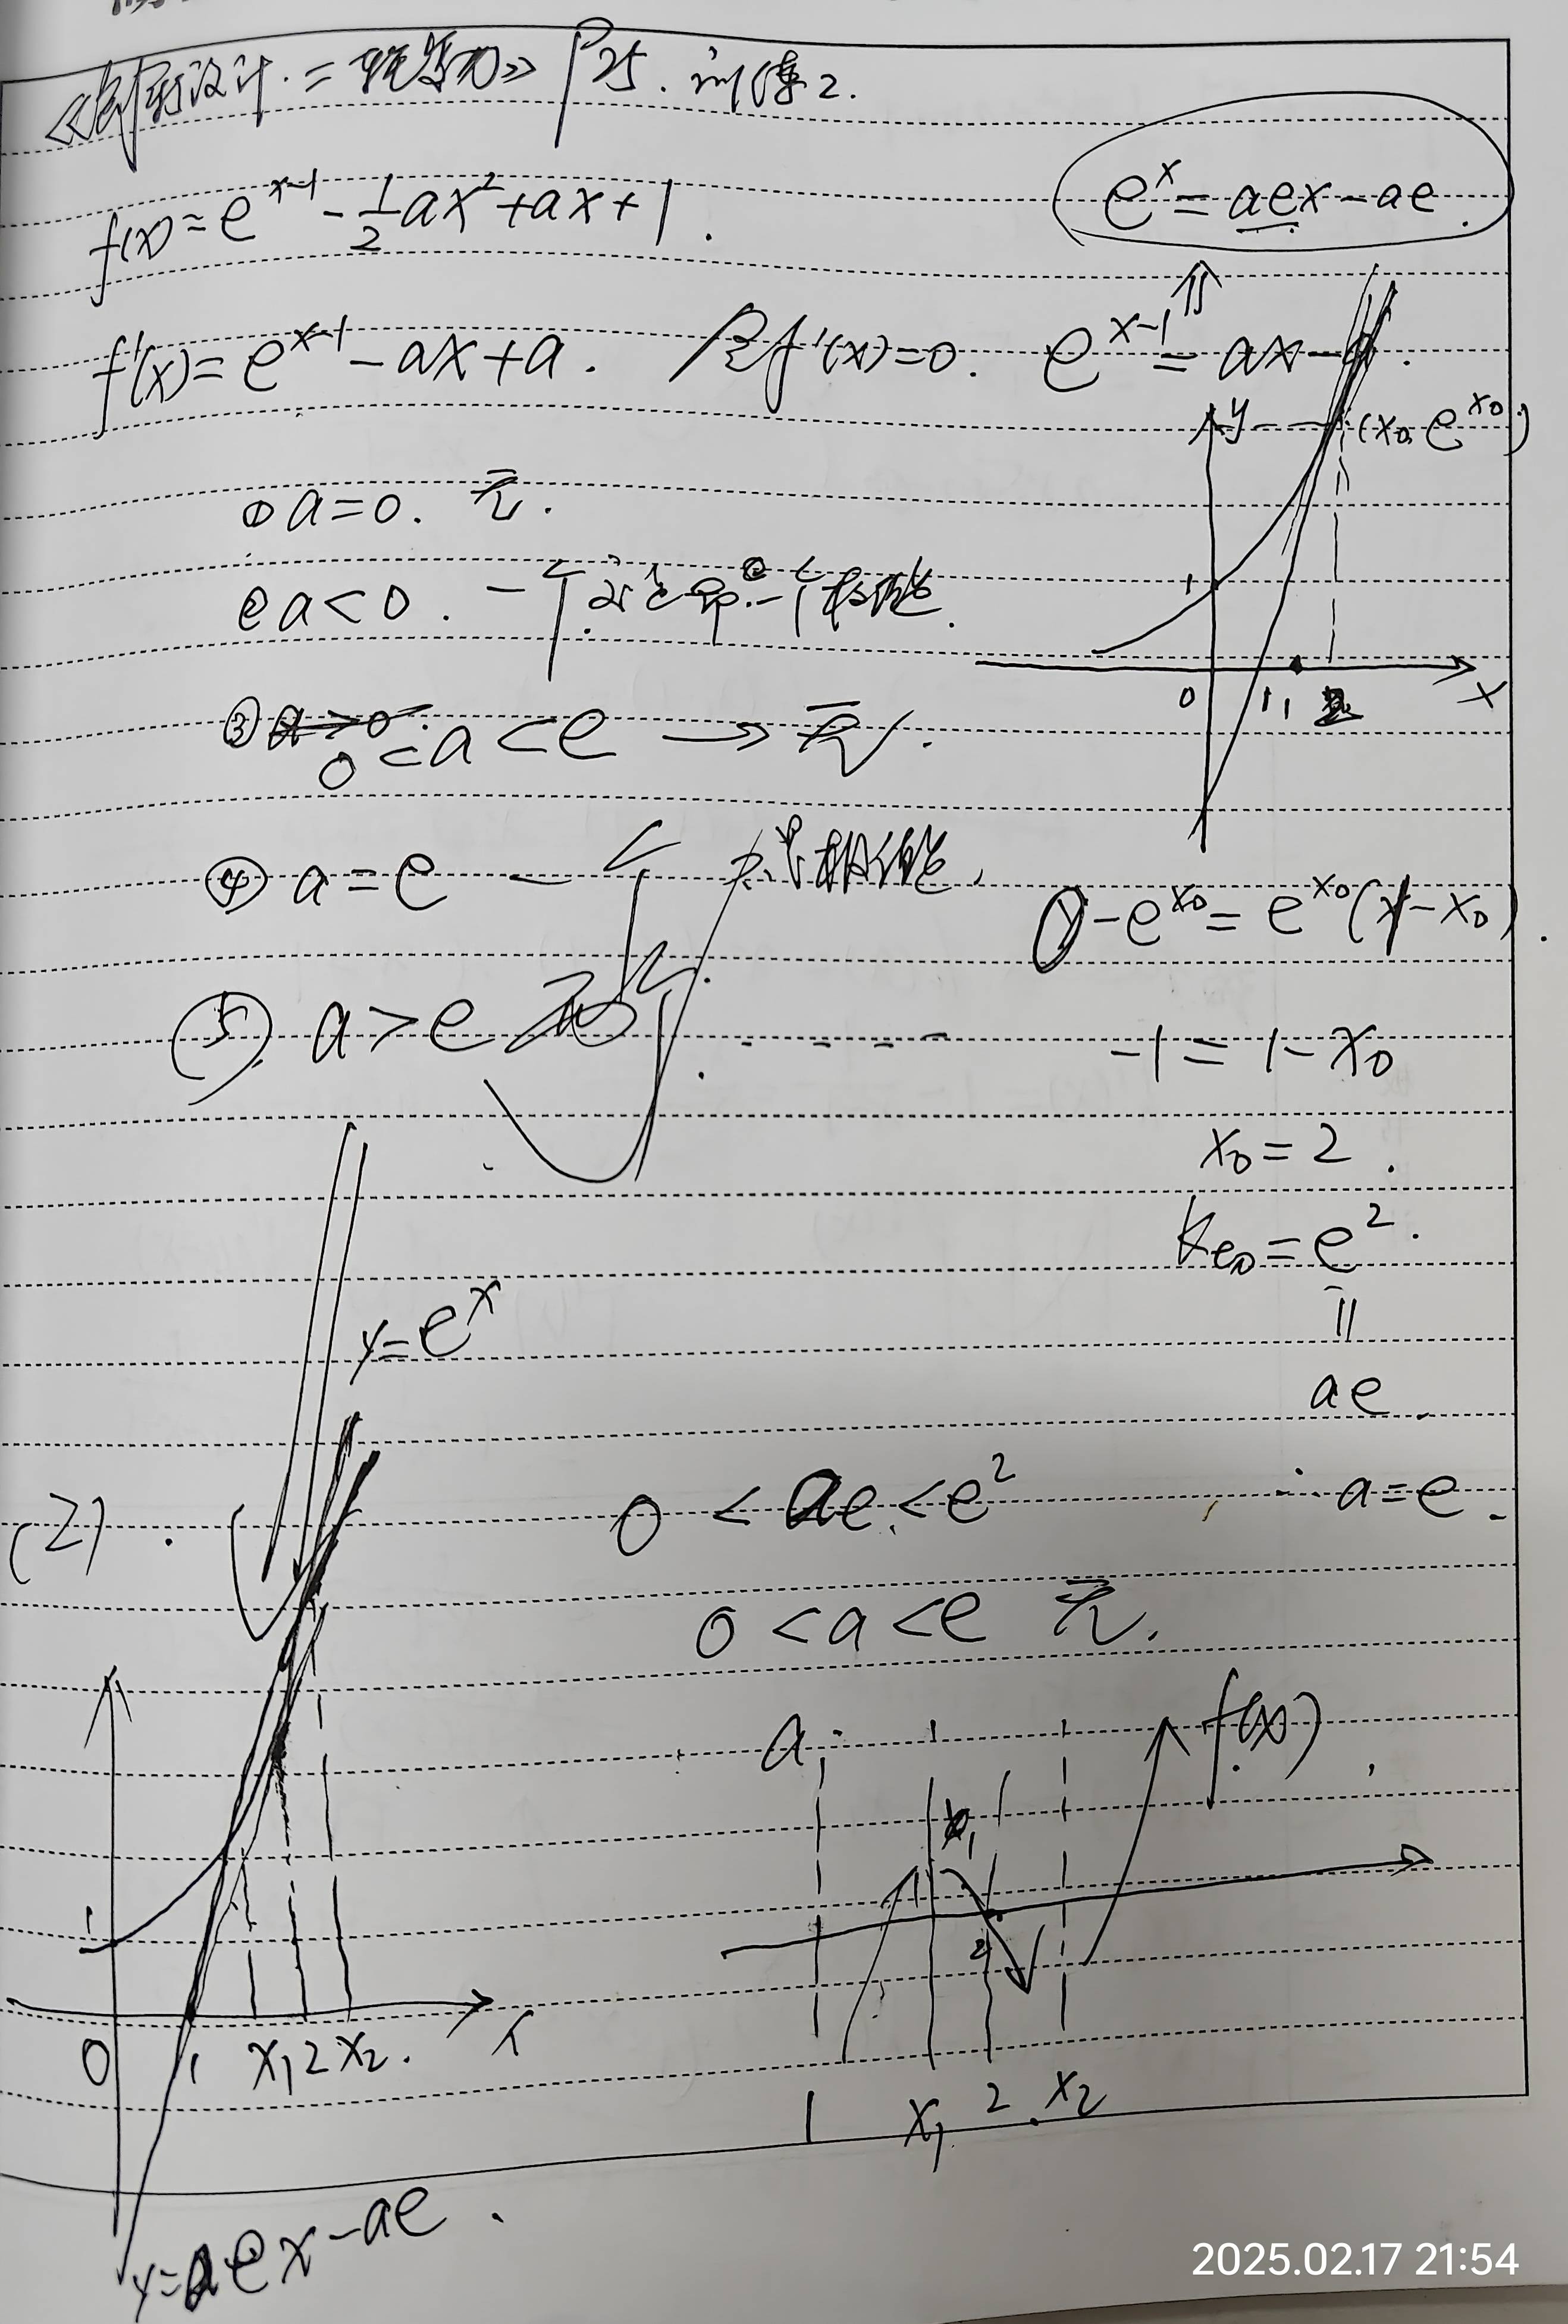 设计·二轮 P25. 训练2.
f(x)=e^{x-1}-\frac{1}{2}ax^2+ax+1.
e^x=aex-ae.
f'(x)=e^{x-1}-ax+a. 令f'(x)=0. e^{x-1}=ax-a.
y (x_0, e^{x_0})
① a=0. 无.
② a<0. 一个 一个极值
1
0 1 x
③ 0<a<e → 无.
④ a=e 一个 极值
y-e^{x_0}=e^{x_0}(x-x_0).
⑤ a>e 个
-1=1-x_0
x_0=2.
K=e^2.
=
ae.
y=e^x
(2).
0<ae<e^2 ∴a=e.
0<a<e 无.
a f(x)
1
2
0 1 x_1 2 x_2. x
1 x_1 2 x_2
y=aex-ae.
2025.02.17 21:54